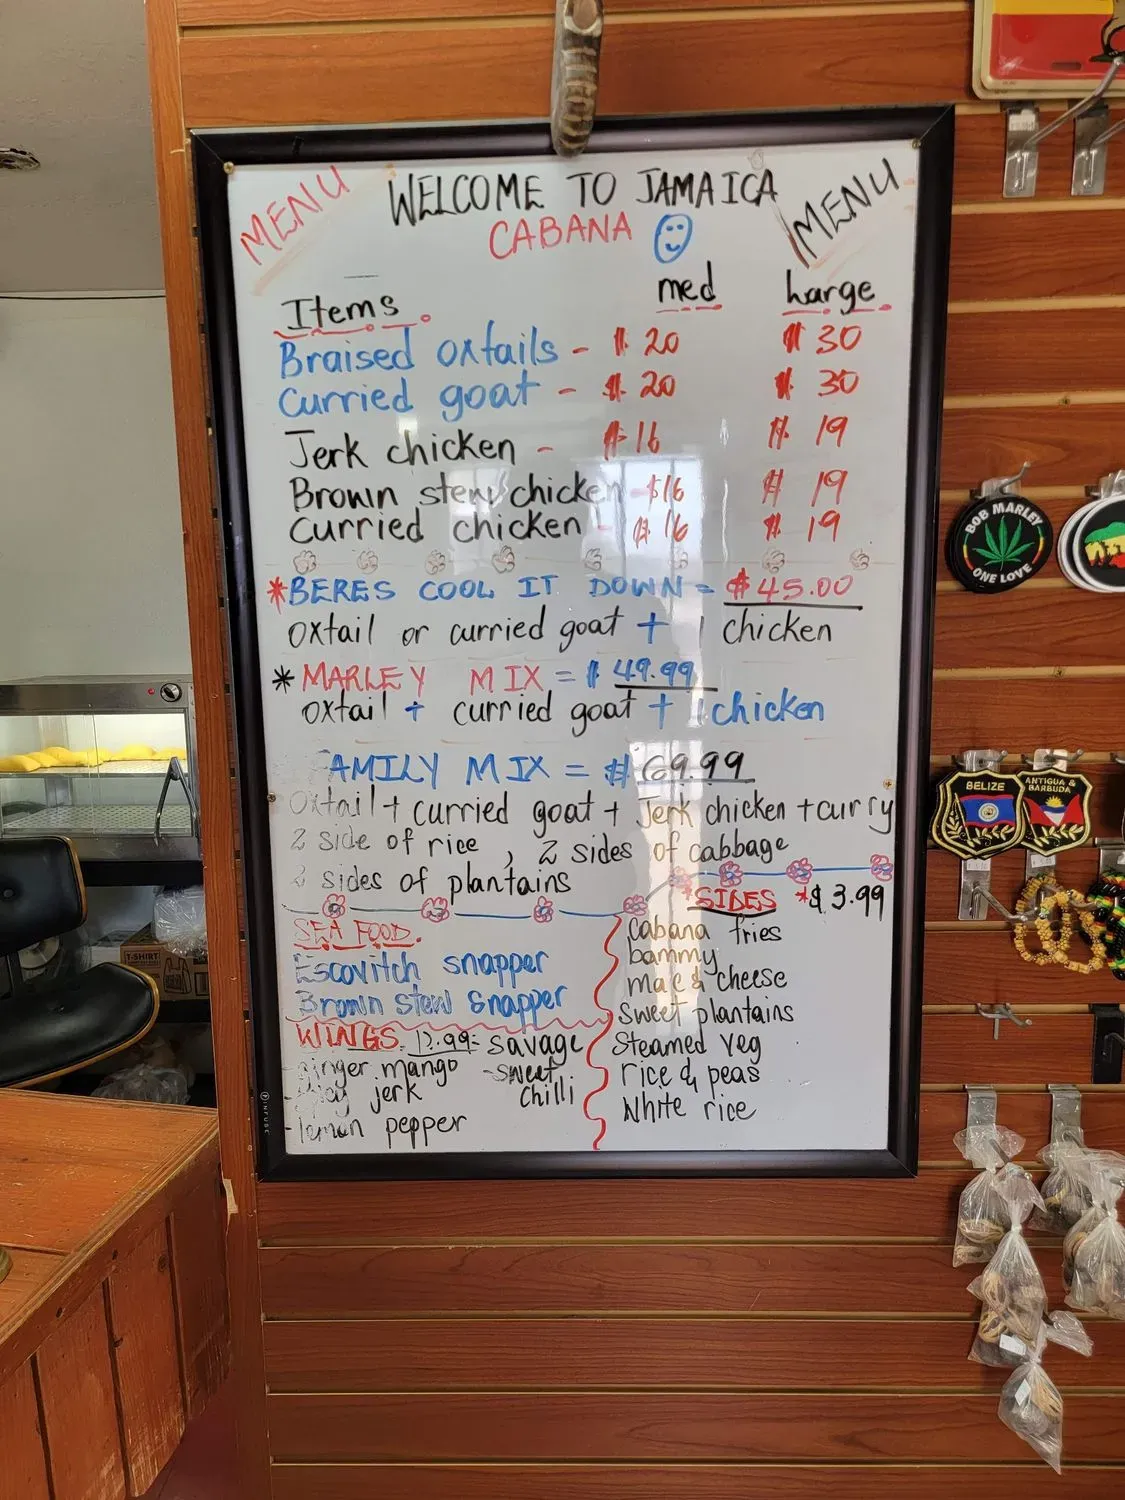 MENU
WELCOME TO JAMAICA
MENU
CABANA
Items med Large
Braised oxtails - $ 20 $ 30
Curried goat - $ 20 $ 30
Jerk chicken - $ 16 $ 19
Brown stew chicken - $16 $ 19
Curried chicken - $ 16 $ 19
*BERES COOL IT DOWN = $45.00
oxtail or curried goat + 1 chicken
*MARLEY MIX = $ 49.99
oxtail + curried goat + 1 chicken
FAMILY MIX = $ 69.99
Oxtail + curried goat + Jerk chicken + curry
2 side of rice , 2 sides of cabbage
2 sides of plantains
*SIDES *$ 3.99
cabana fries
bammy
mac & cheese
sweet plantains
Steamed veg
rice & peas
White rice
SEA FOOD.
Escovitch snapper
Brown stew snapper
WINGS. 12.99= savage
-ginger mango -sweet chilli
- jerk
-lemon pepper
INFUSE
BOB MARLEY
ONE LOVE
BELIZE
ANTIGUA &
BARBUDA
T-SHIRT